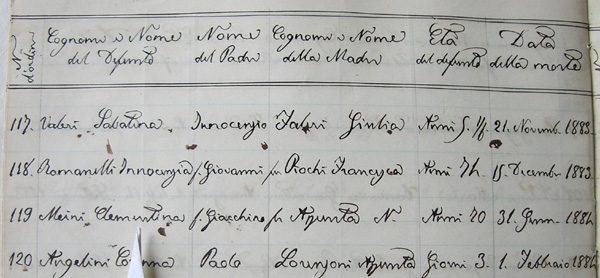 N. d'ordine Cognome e Nome del Defunto Nome del Padre Cognome e Nome della Madre Età del defunto Data della morte
117. Valeri Sabatina Innocenzio Fabri Giulia Anni 5. 21. Novemb. 1883.
118. Romanelli Innocenzia f. Giovanni Piochi Francesca Anni 74. 15. Dicembr 1883.
119 Meini Clementina f. Giacchino Assunta N. Anni 70 31. Genn. 1884
120 Angelini Paolo Lorenzoni Assunta Giorni 3. 1. Febbraio 1884